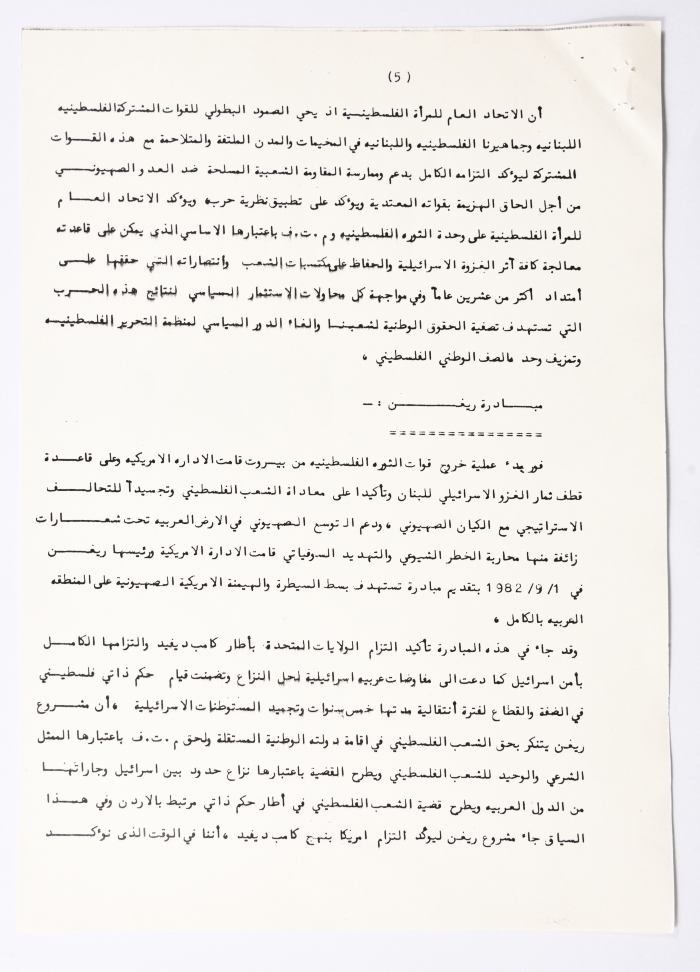 (5)
أن الاتحاد العام للمرأة الفلسطينسية اذ يحي الصمود البطولي للقوات المشتركة الفلسطينيه
اللبنانيه وجماهيرنا الفلسطينيه واللبنانيه في المخيمات والمدن الملتفة والمتلاحمة مع هذه القوات
المشتركة ليؤكد التزامه الكامل بدعم وممارسة المقاومة الشعبية المسلحة ضد العدو الصهيوني
من أجل الحاق الهزيمة بقواته المعتدية ويؤكد على تطبيق نظرية حربه ويؤكد الاتحاد العام
للمرأة الفلسطينية على وحدة الثوره الفلسطينيه وم .ت.ف باعتبارها الاساسي الذي يمكن على قاعدته
معالجة كافة آثر الغزوة الاسرائيلية والحفاظ على مكتسبات الشعب وانتصاراته التي حققها على
أمتداد أكثر من عشرين عاماً وفي مواجهة كل محاولات الاستثمار السياسي لنتائج هذه الحرب
التي تستهدف تصفية الحقوق الوطنية لشعبنا والغاء الدور السياسي لمنظمة التحرير الفلسطينيه
وتمزيف وحدة الصف الوطني الفلسطيني ،
مبادرة ريغن : –
================
فور بدء عملية خروج قوات الثوره الفلسطينيه من بيروت قامت الاداره الامريكيه وعلى قاعدة
قطف ثمار الغزو الاسرائيلي للبنان وتأكيدا على معاداة الشعب الفلسطيني وتجسيدآ للتحالف
الاستراتيجي مع الكيان الصهيوني ، ودعم التوسع الصهيوني في الارض العربيه تحت شعارات
زائفة منها محاربة الخطر الشيوعي والتهديد السوفياتي قامت الادارة الامريكية ورئيسها ريغن
في 1982/9/1 بتقديم مبادرة تستهدف بسط السيطرة والهيمنة الامريكية الصهيونية على المنطقه
العربيه بالكامل ،
وقد جاء في هذه المبادرة تأكيد التزام الولايات المتحدة بأطار كامب ديفيد والتزامها الكامل
بأمن اسرائيل كما دعت الى مفاوضات عربيه اسرائيلية لحل النزاع وتضمنت قيام حكم ذاتي فلسطيني
في الضفة والقطاع لفترة أنتقالية مدتها خمس سنوات وتجميد المستوطنات الاسرائيلية ، أن مشروع
ريغن يتنكر بحق الشعب الفلسطيني في اقامة دولته الوطنية المستقلة ولحق م .ت.ف باعتبارها الممثل
الشرعي والوحيد للشعب الفلسطيني ويطرح القضية باعتبارها نزاع حدود بين اسرائيل وجاراتها
من الدول العربيه ويطرح قضية الشعب الفلسطيني في أطار حكم ذاتي مرتبط بالاردن وفي هذا
السياق جاء مشروع ريغن ليؤكد التزام امريكا بنهج كامب ديفيد ، أننا في الوقت الذى نؤكد